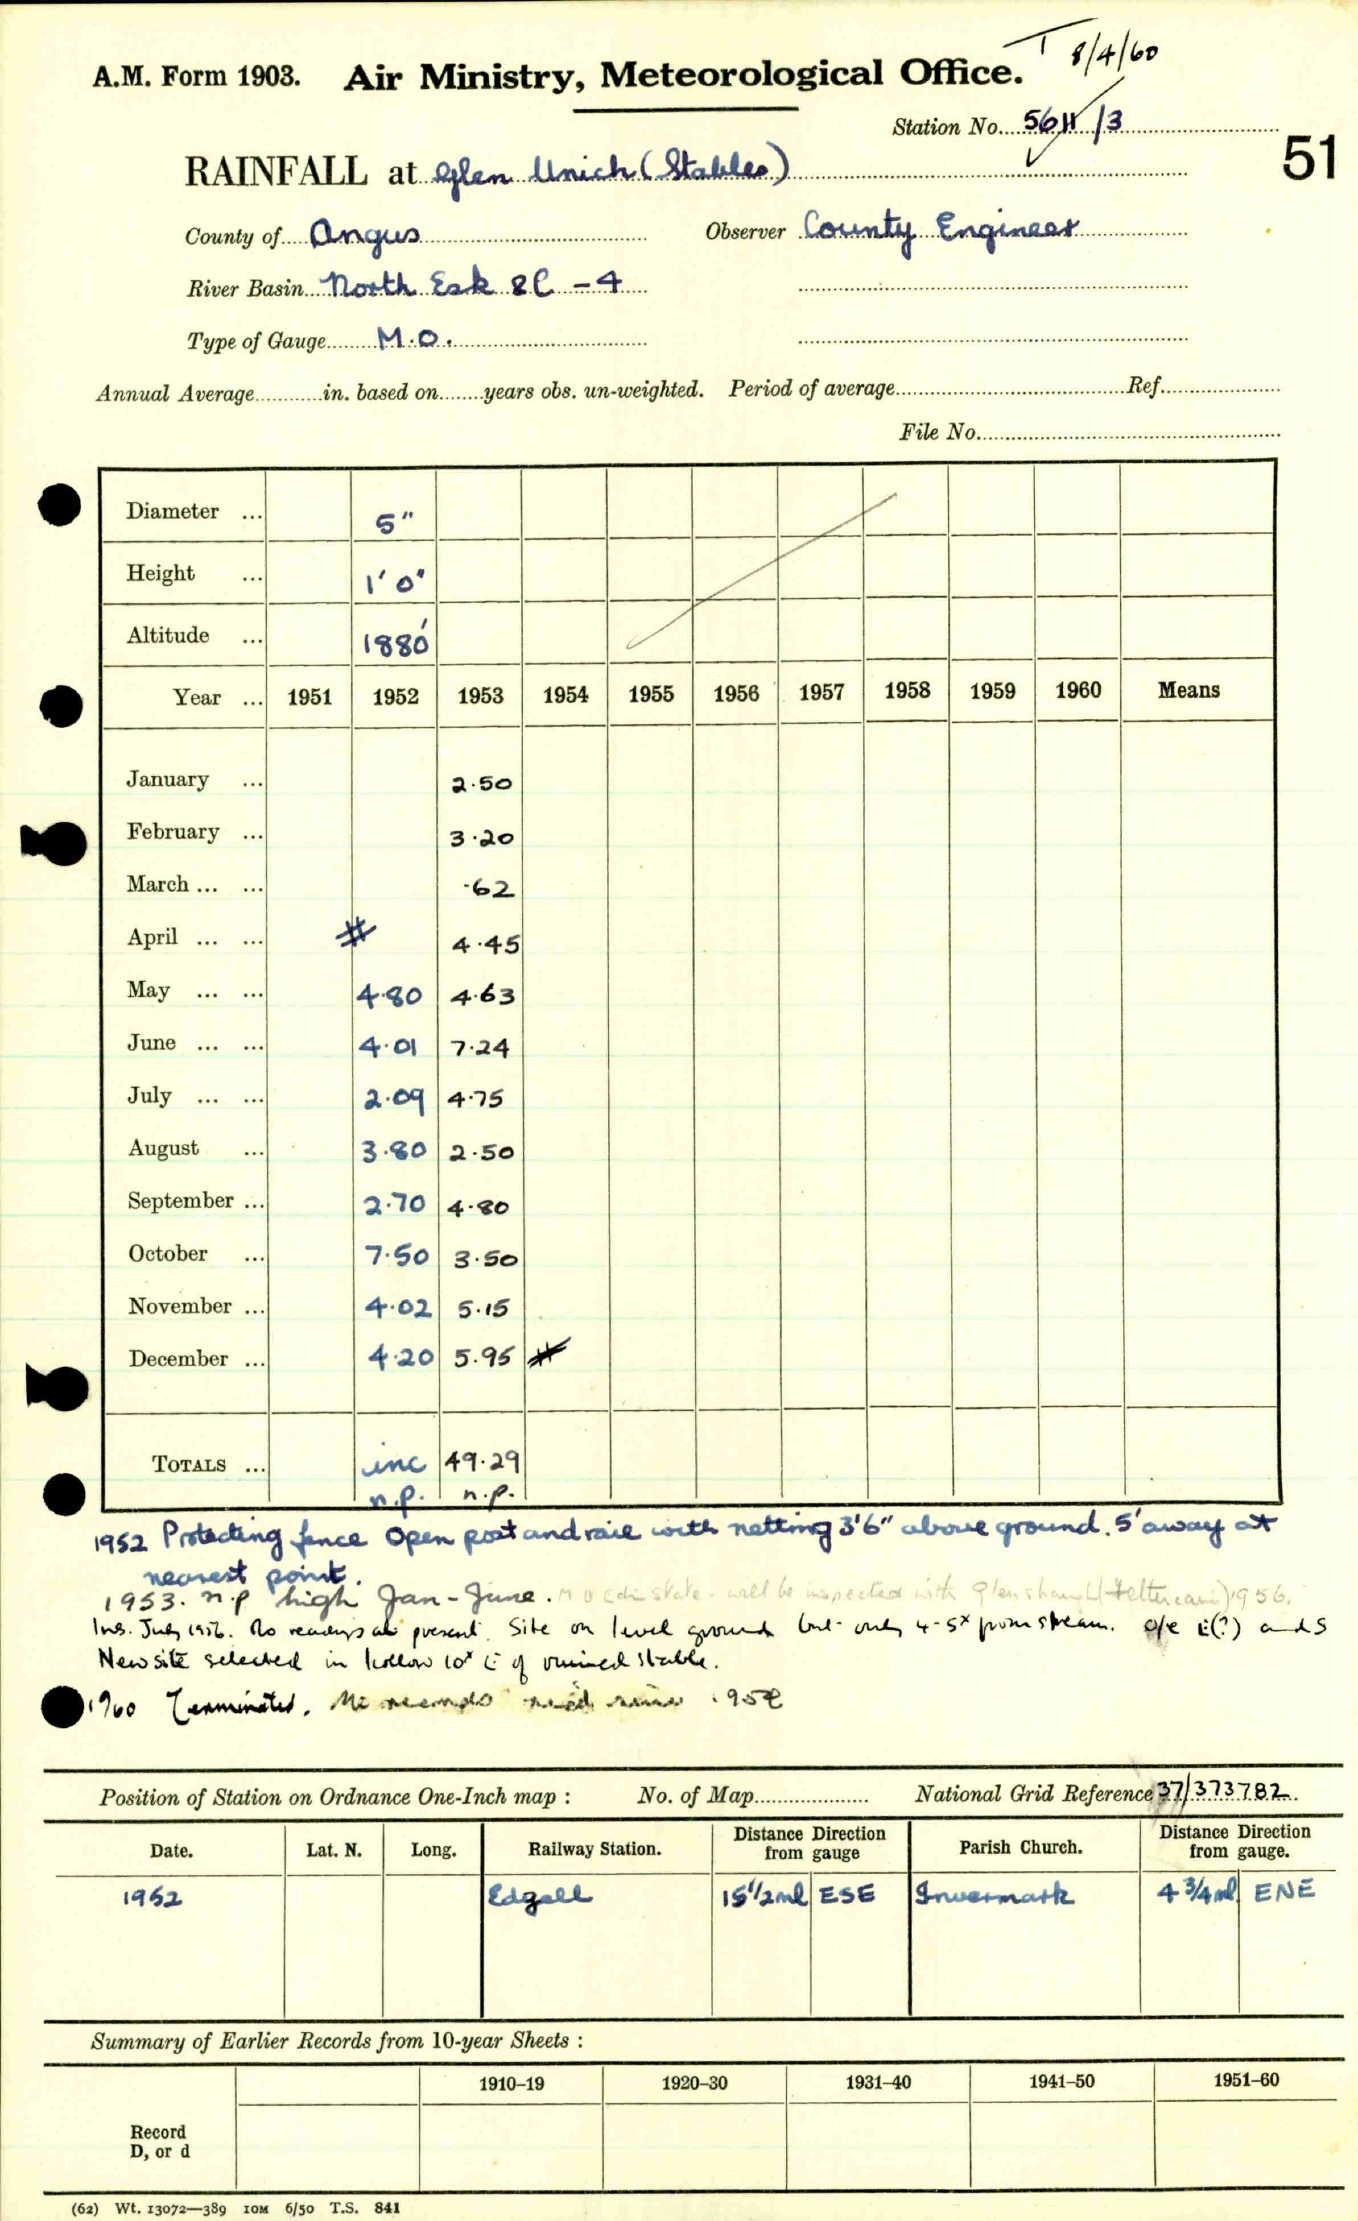 T 8/4/60
A.M. Form 1903. Air Ministry, Meteorological Office.
Station No. 5611/3
51
RAINFALL at Glen Unich (Stables)
County of Angus Observer County Engineer
River Basin North Esk 8C - 4
Type of Gauge M.O.
Annual Average in. based on years obs. un-weighted. Period of average Ref.
File No.
Diameter ... 5"
Height ... 1' 0"
Altitude ... 1880'
Year ... 1951 1952 1953 1954 1955 1956 1957 1958 1959 1960 Means
January ... 2.50
February ... 3.20
March ... ... .62
April ... ... # 4.45
May ... ... 4.80 4.63
June ... ... 4.01 7.24
July ... ... 2.09 4.75
August ... 3.80 2.50
September ... 2.70 4.80
October ... 7.50 3.50
November ... 4.02 5.15
December ... 4.20 5.95 #
TOTALS ... inc 49.29
n.p. n.p.
1952 Protecting fence Open post and rail with netting 3'6" above ground. 5' away at
nearest point.
1953. n.p high Jan-June. will be inspected with 1956.
Ins. July 1956. No readings at present. Site on level ground but only 4-5x from stream. o/e E(?) and S
New site selected in hollow 10x E of ruined stable.
1960 Terminated. No records rec'd since
Position of Station on Ordnance One-Inch map : No. of Map National Grid Reference 37/373782
Date. Lat. N. Long. Railway Station. Distance Direction from gauge Parish Church. Distance Direction from gauge.
1952 Edzell 15 1/2 ml ESE Invermark 4 3/4 ml ENE
Summary of Earlier Records from 10-year Sheets :
1910-19 1920-30 1931-40 1941-50 1951-60
Record
D, or d
(62) Wt. 13072—389 10M 6/50 T.S. 841